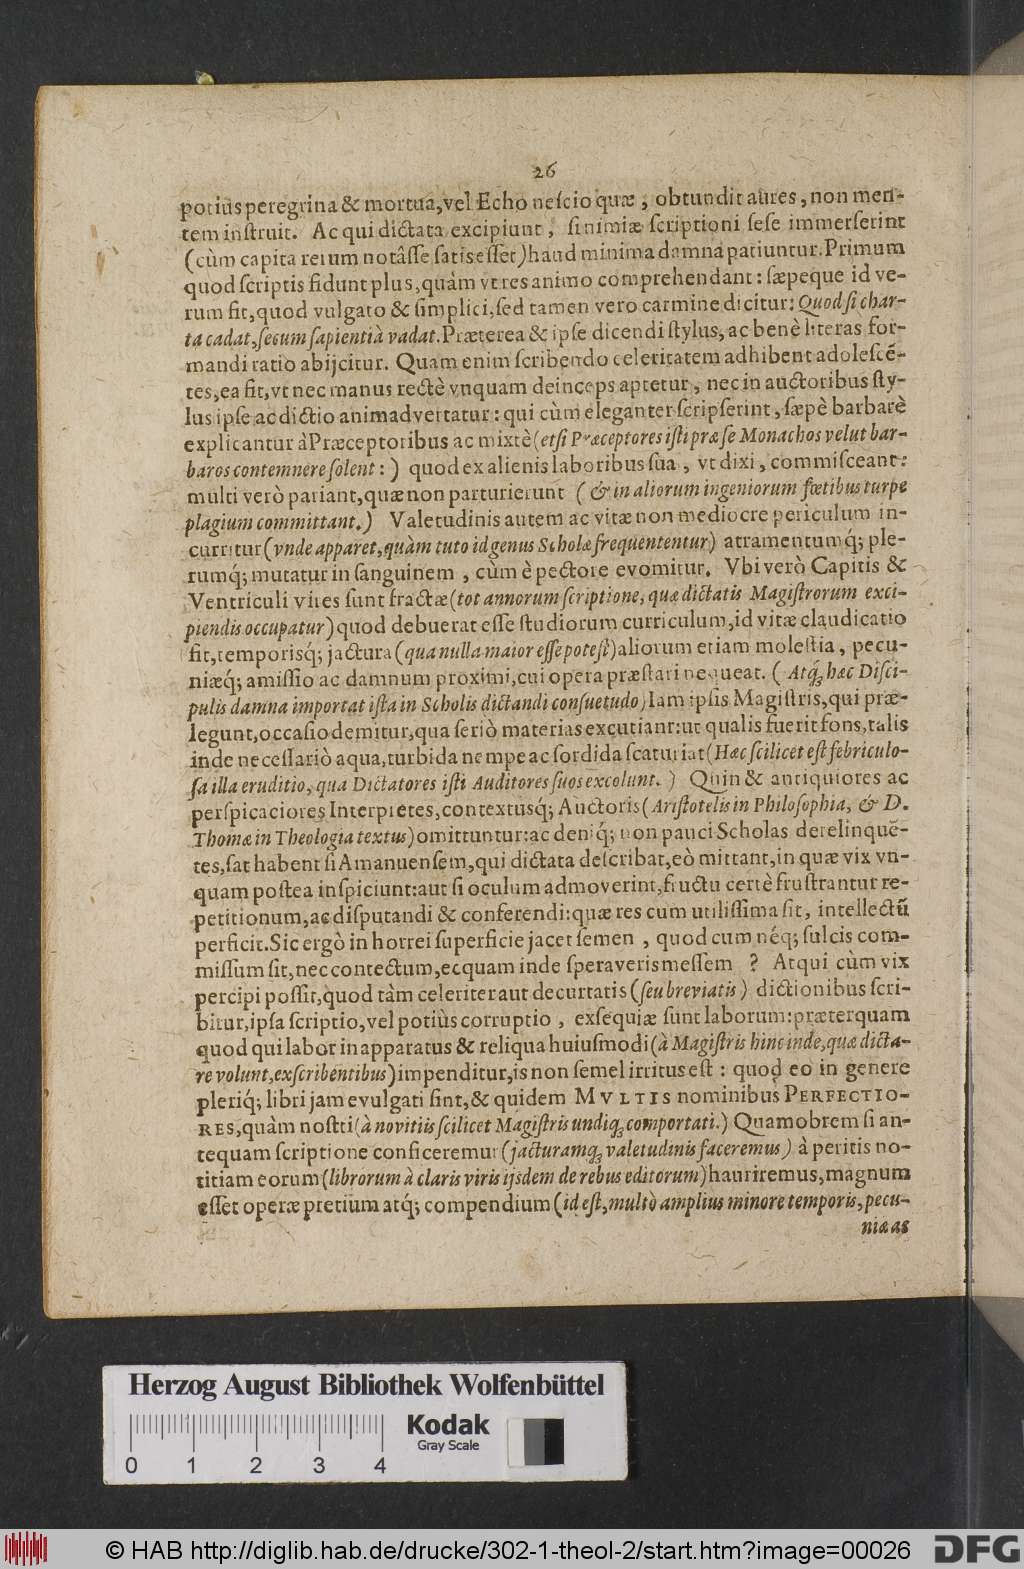 26
potiùs peregrina & mortua, vel Echo neſcio quæ, obtundit aures, non men-
tem inſtruit. Ac qui dictata excipiunt, ſi nimiæ ſcriptioni ſeſe immerſerint
(cùm capita rerum notâſſe ſatis eſſet) haud minima damna patiuntur. Primum
quod ſcriptis fidunt plus, quàm vt res animo comprehendant: ſæpeque id ve-
rum fit, quod vulgato & ſimplici, ſed tamen vero carmine dicitur: Quod ſi char-
ta cadat, ſecum ſapientià vadat. Præterea & ipſe dicendi ſtylus, ac benè literas for-
mandi ratio abijcitur. Quam enim ſcribendo celeritatem adhibent adoleſcē-
tes, ea fit, vt nec manus rectè vnquam deinceps aptetur, nec in auctoribus ſty-
lus ipſe ac dictio animadvertatur: qui cùm eleganter ſcripſerint, ſæpè barbarè
explicantur à Præceptoribus ac mixtè (etſi Præceptores iſti præ ſe Monachos velut bar-
baros contemnere ſolent:) quod ex alienis laboribus ſua, vt dixi, commiſceant:
multi verò pariant, quæ non parturierunt (& in aliorum ingeniorum fœtibus turpe
plagium committant.) Valetudinis autem ac vitæ non mediocre periculum in-
curritur (vnde apparet, quàm tuto id genus Scholæ frequententur) atramentumq́; ple-
rumq́; mutatur in ſanguinem, cùm è pectore evomitur. Vbi verò Capitis &
Ventriculi vires ſunt fractæ (tot annorum ſcriptione, quæ dictatis Magiſtrorum exci-
piendis occupatur) quod debuerat eſſe ſtudiorum curriculum, id vitæ claudicatio
fit, temporisq́; jactura (qua nulla maior eſſe poteſt) aliorum etiam moleſtia, pecu-
niæq́; amiſſio ac damnum proximi, cui opera præſtari nequeat. (Atq́; hæc Diſci-
pulis damna importat iſta in Scholis dictandi conſuetudo) Iam ipſis Magiſtris, qui præ-
legunt, occaſio demitur, qua ſeriò materias excutiant: ut qualis fuerit fons, talis
inde neceſſariò aqua, turbida nempe ac ſordida ſcaturiat (Hæc ſcilicet eſt febriculo-
ſa illa eruditio, qua Dictatores iſti Auditores ſuos excolunt.) Quin & antiquiores ac
perſpicaciores Interpretes, contextusq́; Auctoris (Ariſtotelis in Philoſophia, & D.
Thomæ in Theologia textus) omittuntur: ac deniq́; non pauci Scholas derelinquē-
tes, ſat habent ſi Amanuenſem, qui dictata deſcribat, eò mittant, in quæ vix vn-
quam poſtea inſpiciunt: aut ſi oculum admoverint, fructu certè fruſtrantur re-
petitionum, ac diſputandi & conferendi: quæ res cum utiliſſima ſit, intellectū
perficit. Sic ergò in horrei ſuperficie jacet ſemen, quod cum néq; ſulcis com-
miſſum ſit, nec contectum, ecquam inde ſperaveris meſſem? Atqui cùm vix
percipi poſſit, quod tàm celeriter aut decurtatis (ſeu breviatis) dictionibus ſcri-
bitur, ipſa ſcriptio, vel potiùs corruptio, exſequiæ ſunt laborum: præterquam
quod qui labor in apparatus & reliqua huiuſmodi (à Magiſtris hinc inde, quæ dicta-
re volunt, exſcribentibus) impenditur, is non ſemel irritus eſt: quod eo in genere
pleriq́; libri jam evulgati ſint, & quidem MVLTIS nominibus PERFECTIO-
RES, quàm noſtri (à novitiis ſcilicet Magiſtris undiq; comportati.) Quamobrem ſi an-
tequam ſcriptione conficeremur (jacturamq; valetudinis faceremus) à peritis no-
titiam eorum (librorum à claris viris ijsdem de rebus editorum) hauriremus, magnum
eſſet operæ pretium atq́; compendium (id eſt, multò amplius minore temporis, pecu-
niæ ac
Herzog August Bibliothek Wolfenbüttel
Kodak
Gray Scale
0 1 2 3 4
© HAB http://diglib.hab.de/drucke/302-1-theol-2/start.htm?image=00026
DFG